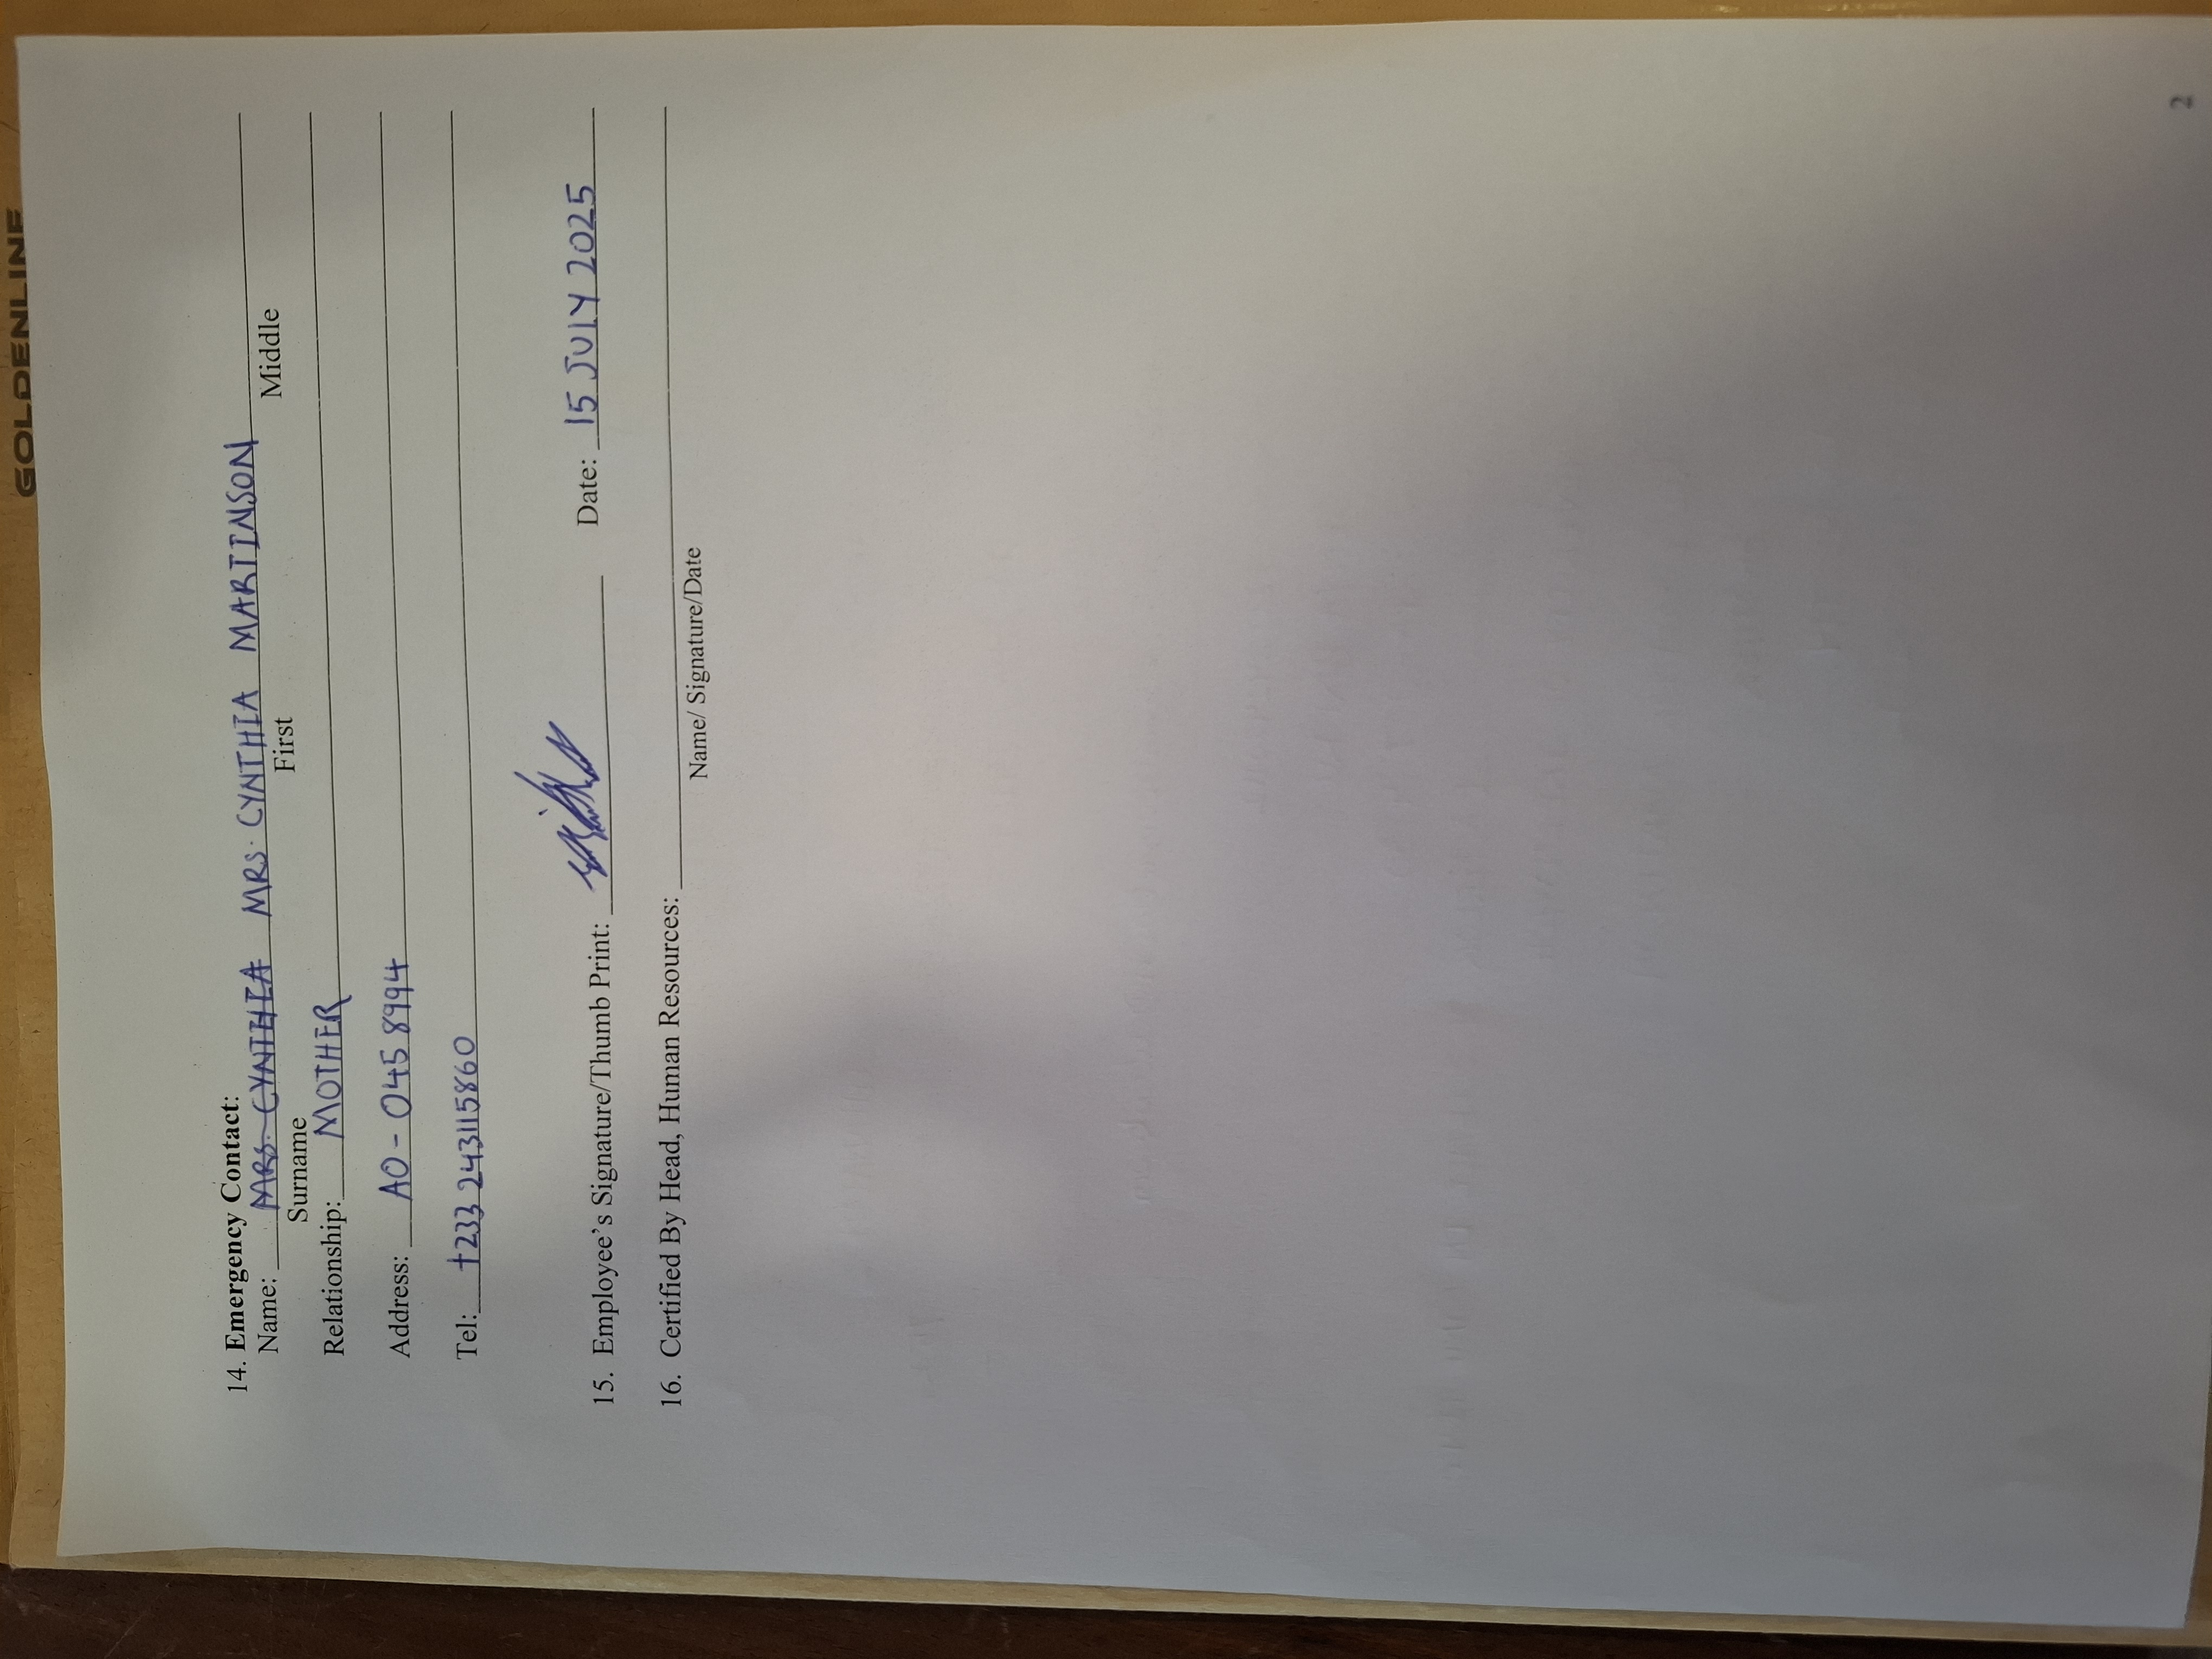 GOLDENLINE
14. Emergency Contact:
Name: MRS. CYNTHIA MRS. CYNTHIA MARTINSON
Surname First Middle
Relationship: MOTHER
Address: AO - 0458994
Tel: +233 243115860
15. Employee's Signature/Thumb Print: Date: 15 JULY 2025
16. Certified By Head, Human Resources:
Name/ Signature/Date
2